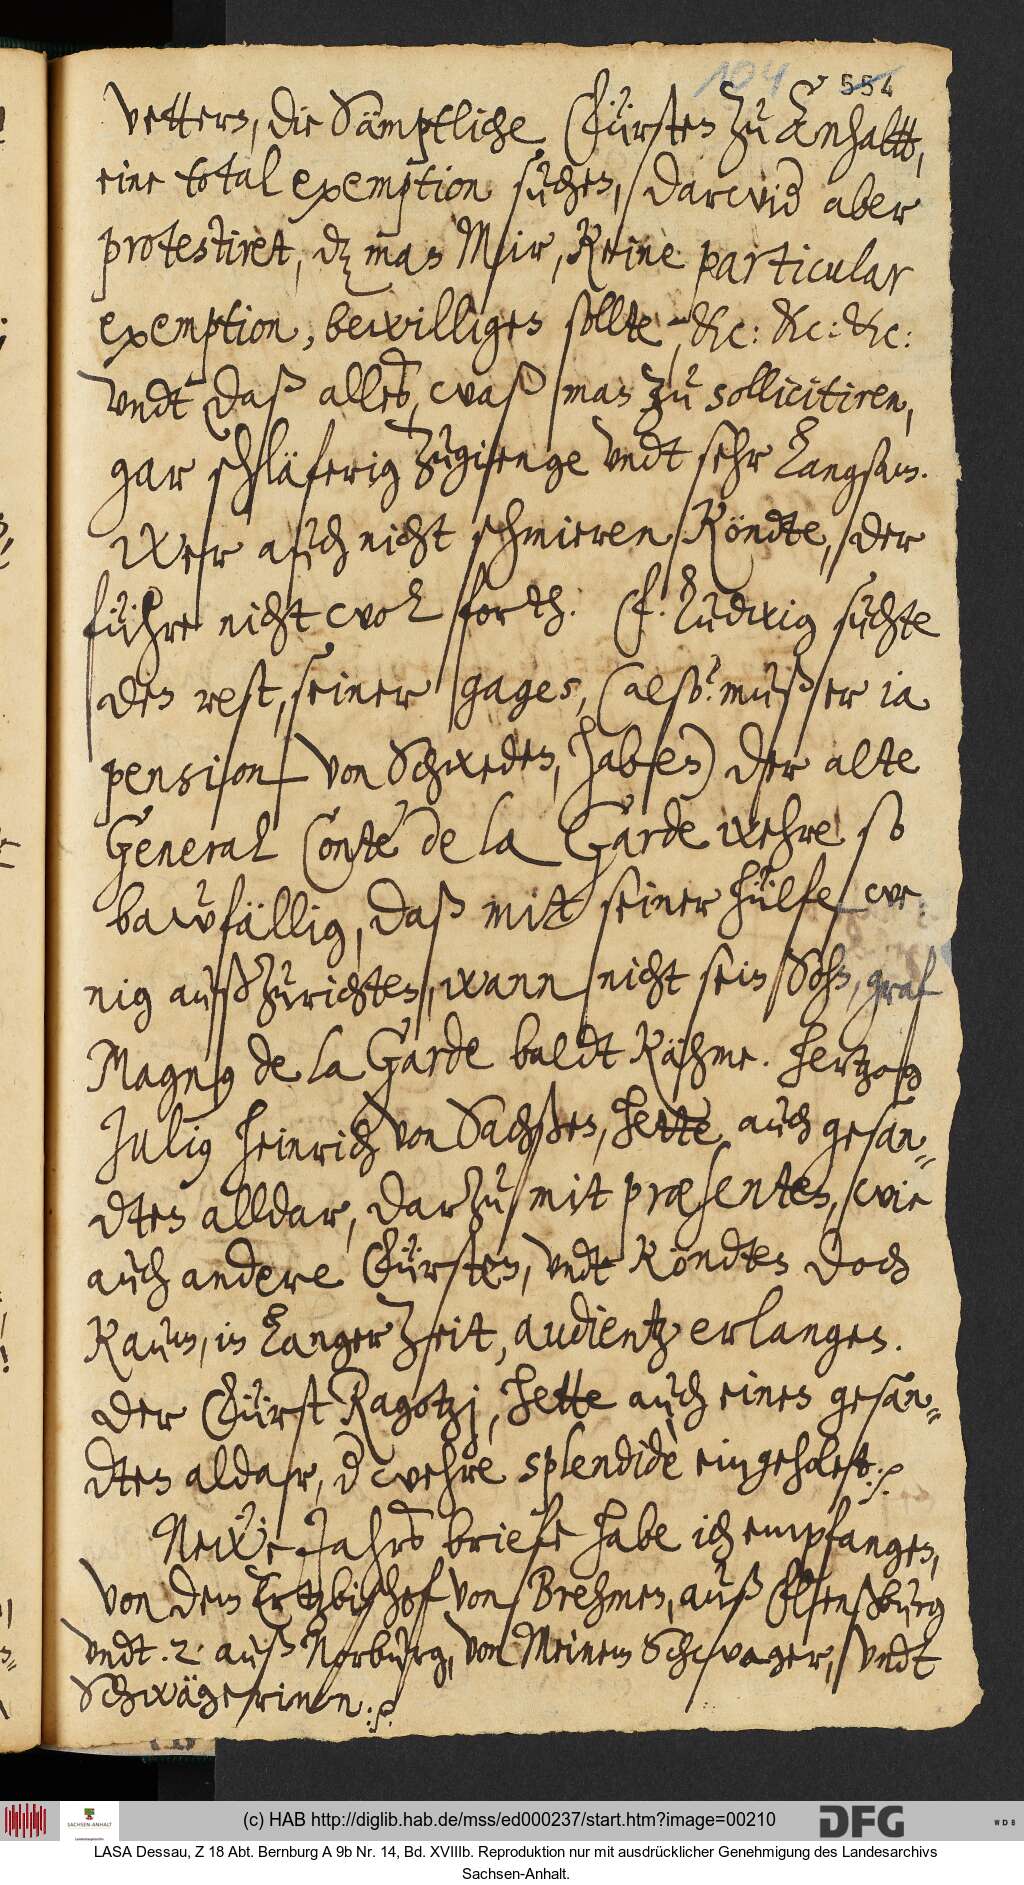 104 554
vettern, die Sämptliche Fürsten zu Anhaltt,
eine total exemption suchen, darwid aber
protestiret, dz man Mir, Keine particular
exemption, bewilligen sollte, &c: &c: &c:
Vndt daß alles, waß man zu sollicitiren,
gar schläferig zugienge Vndt sehr Langsam.
Wer auch nicht schmieren Köndte, der
führe nicht wol forth. F. Ludwig suchte
den rest, seiner gages, (also muß er ia
pension von Schweden, haben) der alte
General Conte de la Garde wehre so
bawfällig, daß mitt seiner hülfe we-
nig außzurichten, wann nicht sein Sohn, graf
Magnus de la Garde baldt Kähme. Hertzog
Julius Heinrich von Sachßen, hette auch gesan-
dten alldar, darzu mit præsenten, wie
auch andere Fürsten, vndt Köndten doch
Kaum, in Langer Zeit, audientz erlangen.
Der Fürst Ragotzj, hette auch einen gesan-
dten aldar, d wehre splendidè eingeholet.
NewJahrs briefe habe ich empfangen,
Von dem Ertzbischof von Brehmen, auß Flensburg
vndt .2. auß Norburg, von Meinem Schwager, Vndt
Schwägerinnen.
(c) HAB http://diglib.hab.de/mss/ed000237/start.htm?image=00210
SACHSEN-ANHALT
DFG
WDB
LASA Dessau, Z 18 Abt. Bernburg A 9b Nr. 14, Bd. XVIIIb. Reproduktion nur mit ausdrücklicher Genehmigung des Landesarchivs
Sachsen-Anhalt.